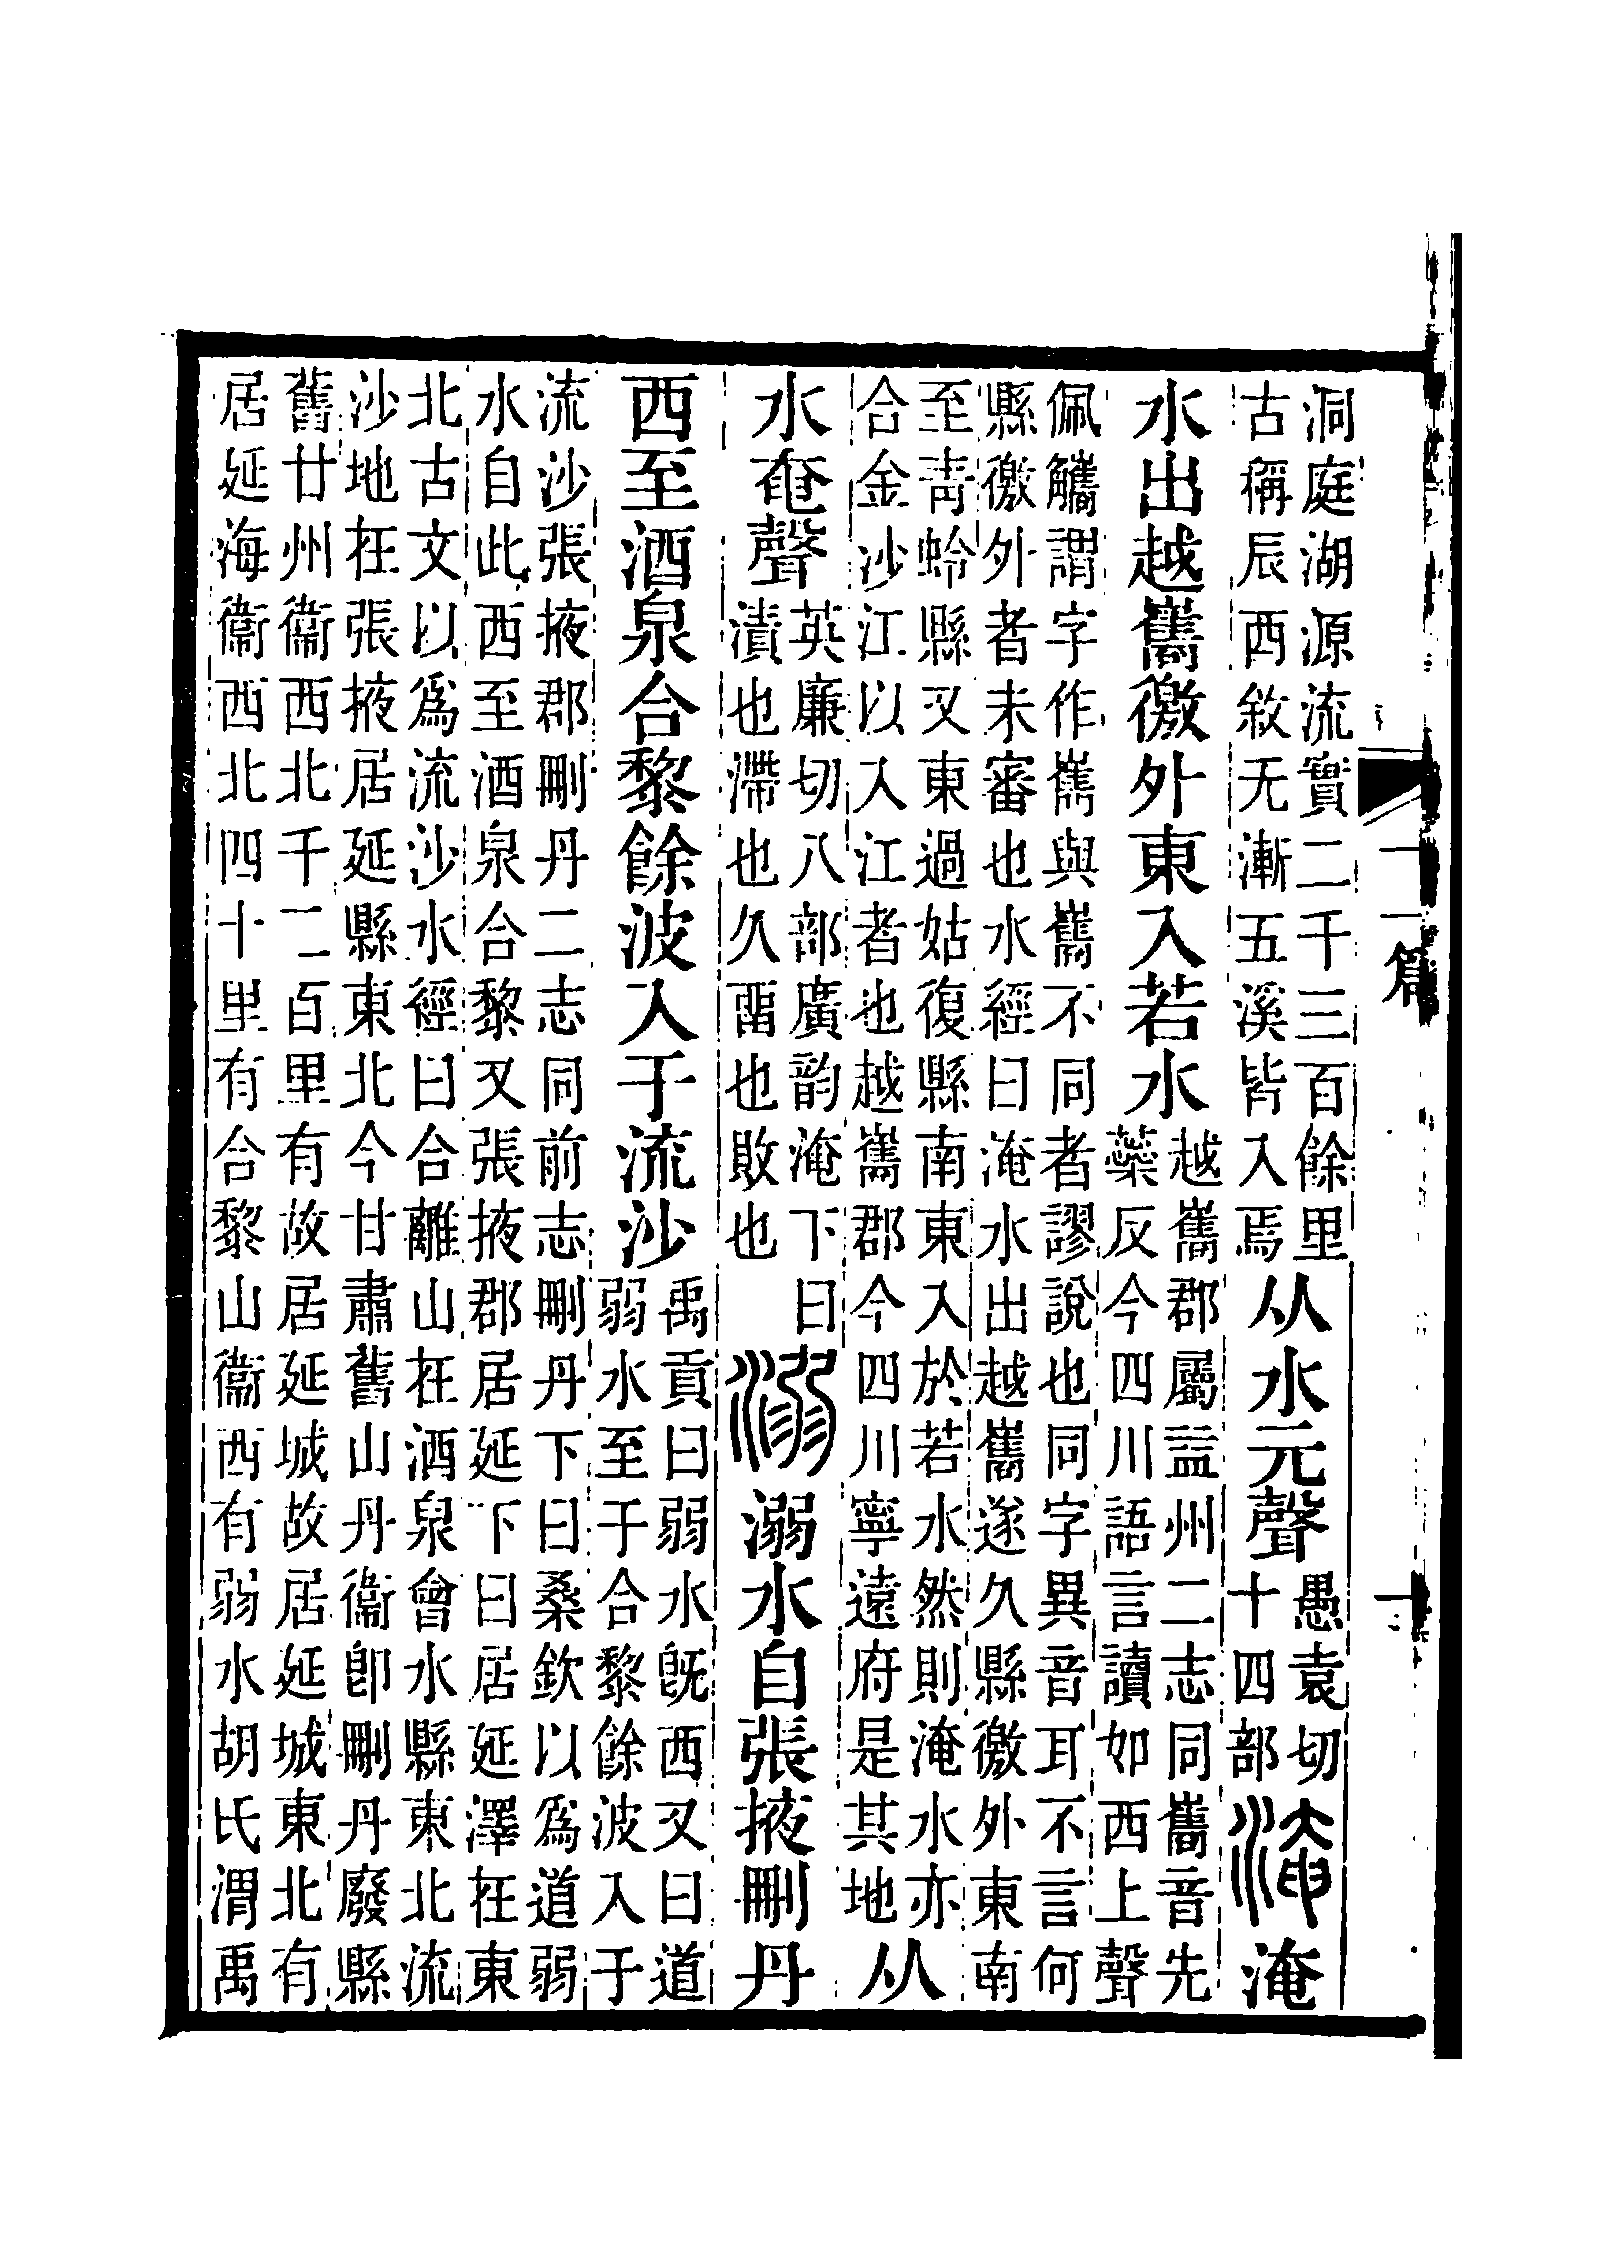 洞庭湖源流實二千三百餘里
古稱辰西敘无漸五溪皆入焉
从水元聲
愚袁切
十四部
淹淹
水出越巂徼外東入若水
越巂郡屬益州二志同巂音先
蘂反今四川語言讀如西上聲
佩觿謂字作嶲與巂不同者謬說也同字異音耳不言何
縣徼外者未審也水經曰淹水出越嶲遂久縣徼外東南
至青蛉縣又東過姑復縣南東入於若水然則淹水亦
合金沙江以入江者也越嶲郡今四川寧遠府是其地
从
水奄聲
英廉切八部廣韵淹下曰
漬也滯也久畱也敗也
溺溺水自張掖刪丹
西至酒泉合黎餘波入于流沙
禹貢曰弱水旣西又曰道
弱水至于合黎餘波入于
流沙張掖郡刪丹二志同前志刪丹下曰桑欽以爲道弱
水自此西至酒泉合黎又張掖郡居延下曰居延澤在東
北古文以爲流沙水經曰合離山在酒泉會水縣東北流
沙地在張掖居延縣東北今甘肅舊山丹衞卽刪丹廢縣
舊甘州衞西北千二百里有故居延城故居延城東北有
居延海衞西北四十里有合黎山衞西有弱水胡氏渭禹